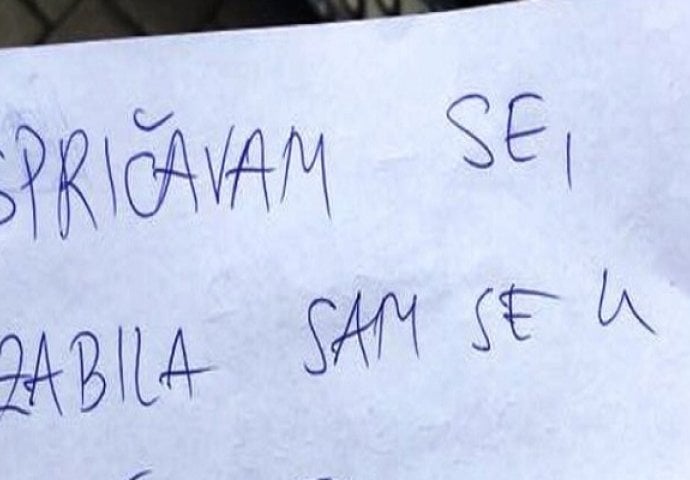 SPRIČAVAM SE,
ZABILA SAM SE U